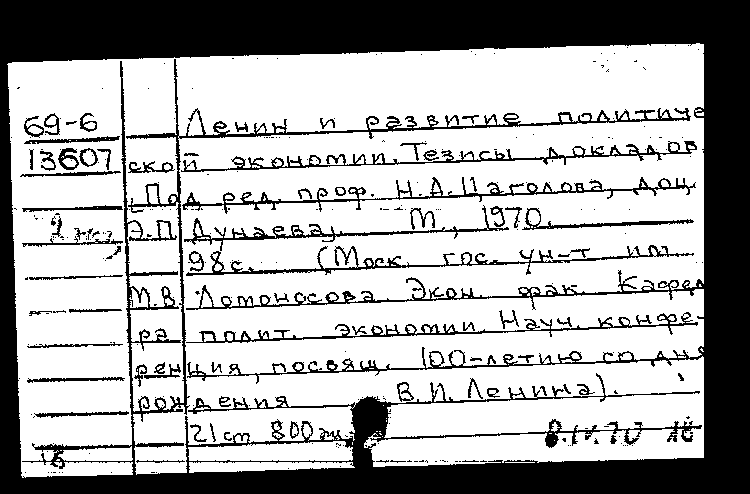 69-6 Ленин и развитие политиче
13607 ской экономии. Тезисы докладов.
[Под ред. проф. Н.А. Цаголова, доц.
2 экз. Э.П. Дунаева]. М., 1970.
98с. (Моск. гос. ун-т им.
М.В. Ломоносова. Экон. фак. Кафед
ра полит. экономии. Науч. конфе-
ренция, посвящ. 100-летию со дня
рождения В.И. Ленина).
21 см 800 экз. 8.IV.70